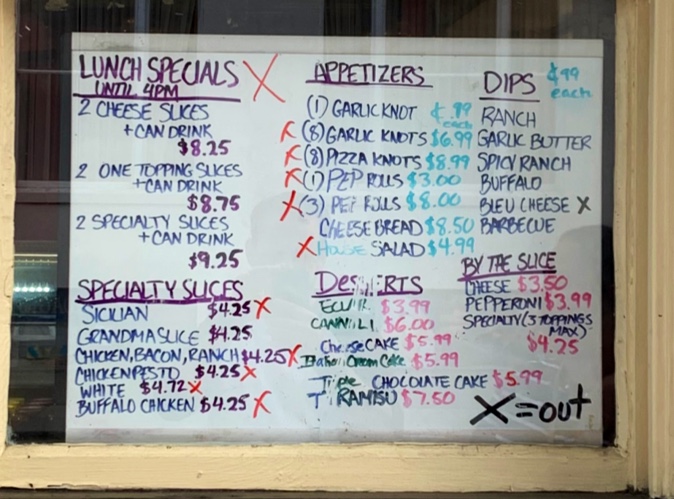 LUNCH SPECIALS X
UNTIL 4PM
2 CHEESE SLICES
+CAN DRINK
$8.25
2 ONE TOPPING SLICES
+CAN DRINK
$8.75
2 SPECIALTY SLICES
+CAN DRINK
$9.25
SPECIALTY SLICES
SICILIAN $4.25 X
GRANDMA SLICE $4.25
CHICKEN, BACON, RANCH $4.25 X
CHICKEN PESTO $4.25 X
WHITE $4.72 X
BUFFALO CHICKEN $4.25 X
APPETIZERS
(1) GARLIC KNOT ¢.99
each
X (8) GARLIC KNOTS $6.99
X (8) PIZZA KNOTS $8.99
X (1) PEP ROLLS $3.00
X (3) PEP ROLLS $8.00
CHEESE BREAD $8.50
X HOUSE SALAD $4.99
DIPS ¢99
each
RANCH
GARLIC BUTTER
SPICY RANCH
BUFFALO
BLEU CHEESE X
BARBECUE
DESSERTS
$3.99
CANNOLI $6.00
Cheese CAKE $5.99
Italian Cream Cake $5.99
Triple CHOCOLATE CAKE $5.99
TIRAMISU $7.50
BY THE SLICE
CHEESE $3.50
PEPPERONI $3.99
SPECIALTY (3 TOPPINGS
MAX)
$4.25
X = out